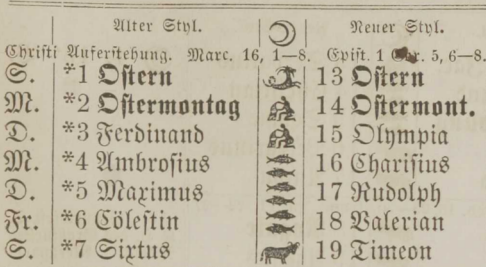 Alter Styl. Neuer Styl.
Christi Auferstehung. Marc. 16, 1—8. Epist. 1 Cor. 5, 6—8.
S. *1 Ostern 13 Ostern
M. *2 Ostermontag 14 Ostermont.
D. *3 Ferdinand 15 Olympia
M. *4 Ambrosius 16 Charisius
D. *5 Maximus 17 Rudolph
Fr. *6 Cölestin 18 Valerian
S. *7 Sixtus 19 Timeon